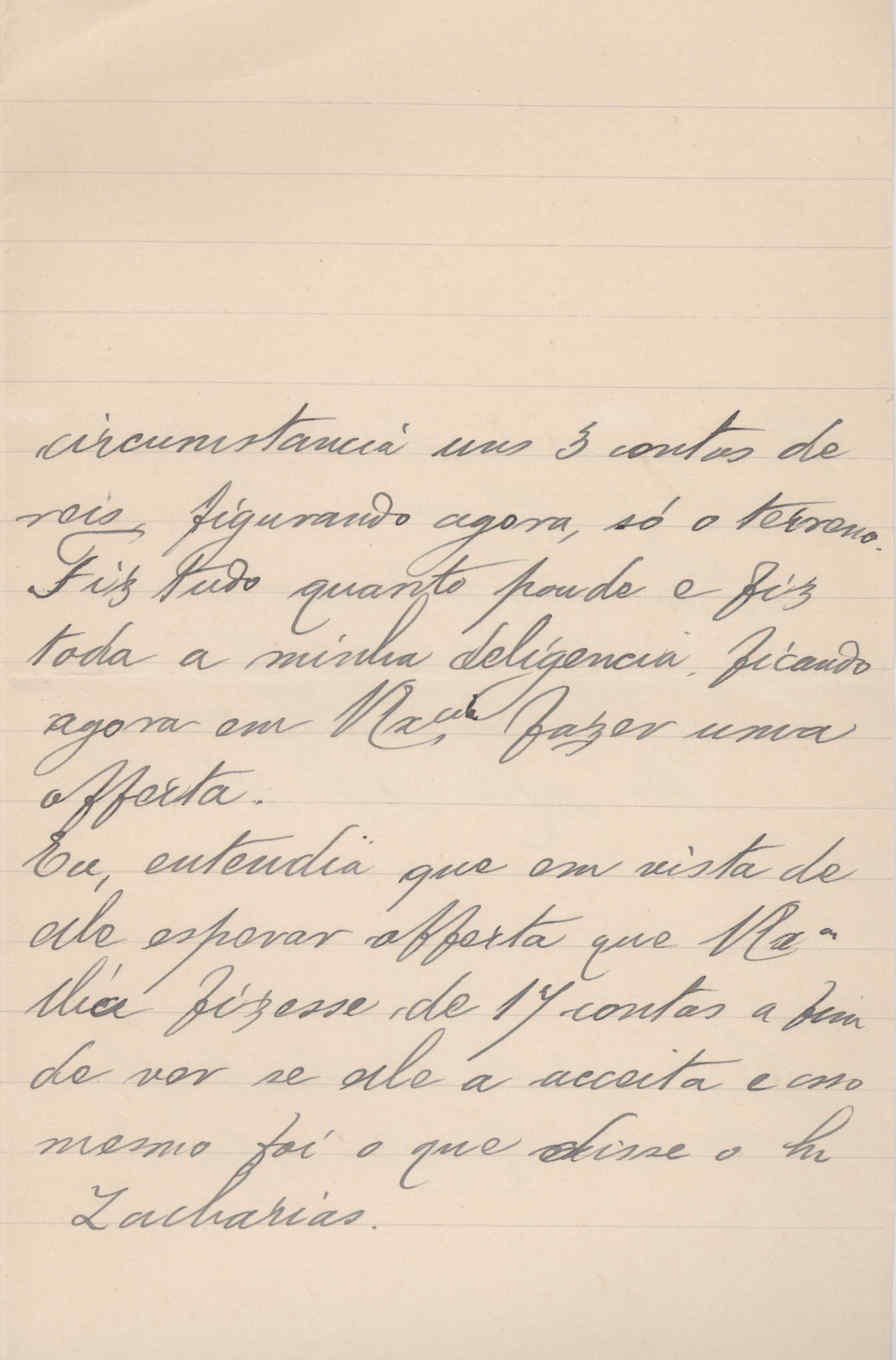 circumstancia uns 3 contos de
reis, figurando agora, só o terreno.
Fiz tudo quanto poude e fiz
toda a minha deligencia, ficando
agora em fazer uma
offerta.
Eu, entendia que em vista de
ele esperar offerta que
lhia fizesse de 17 contos a fim
de ver se ele a acceita e isso
mesmo foi o que disse o Sr
Zacharias.